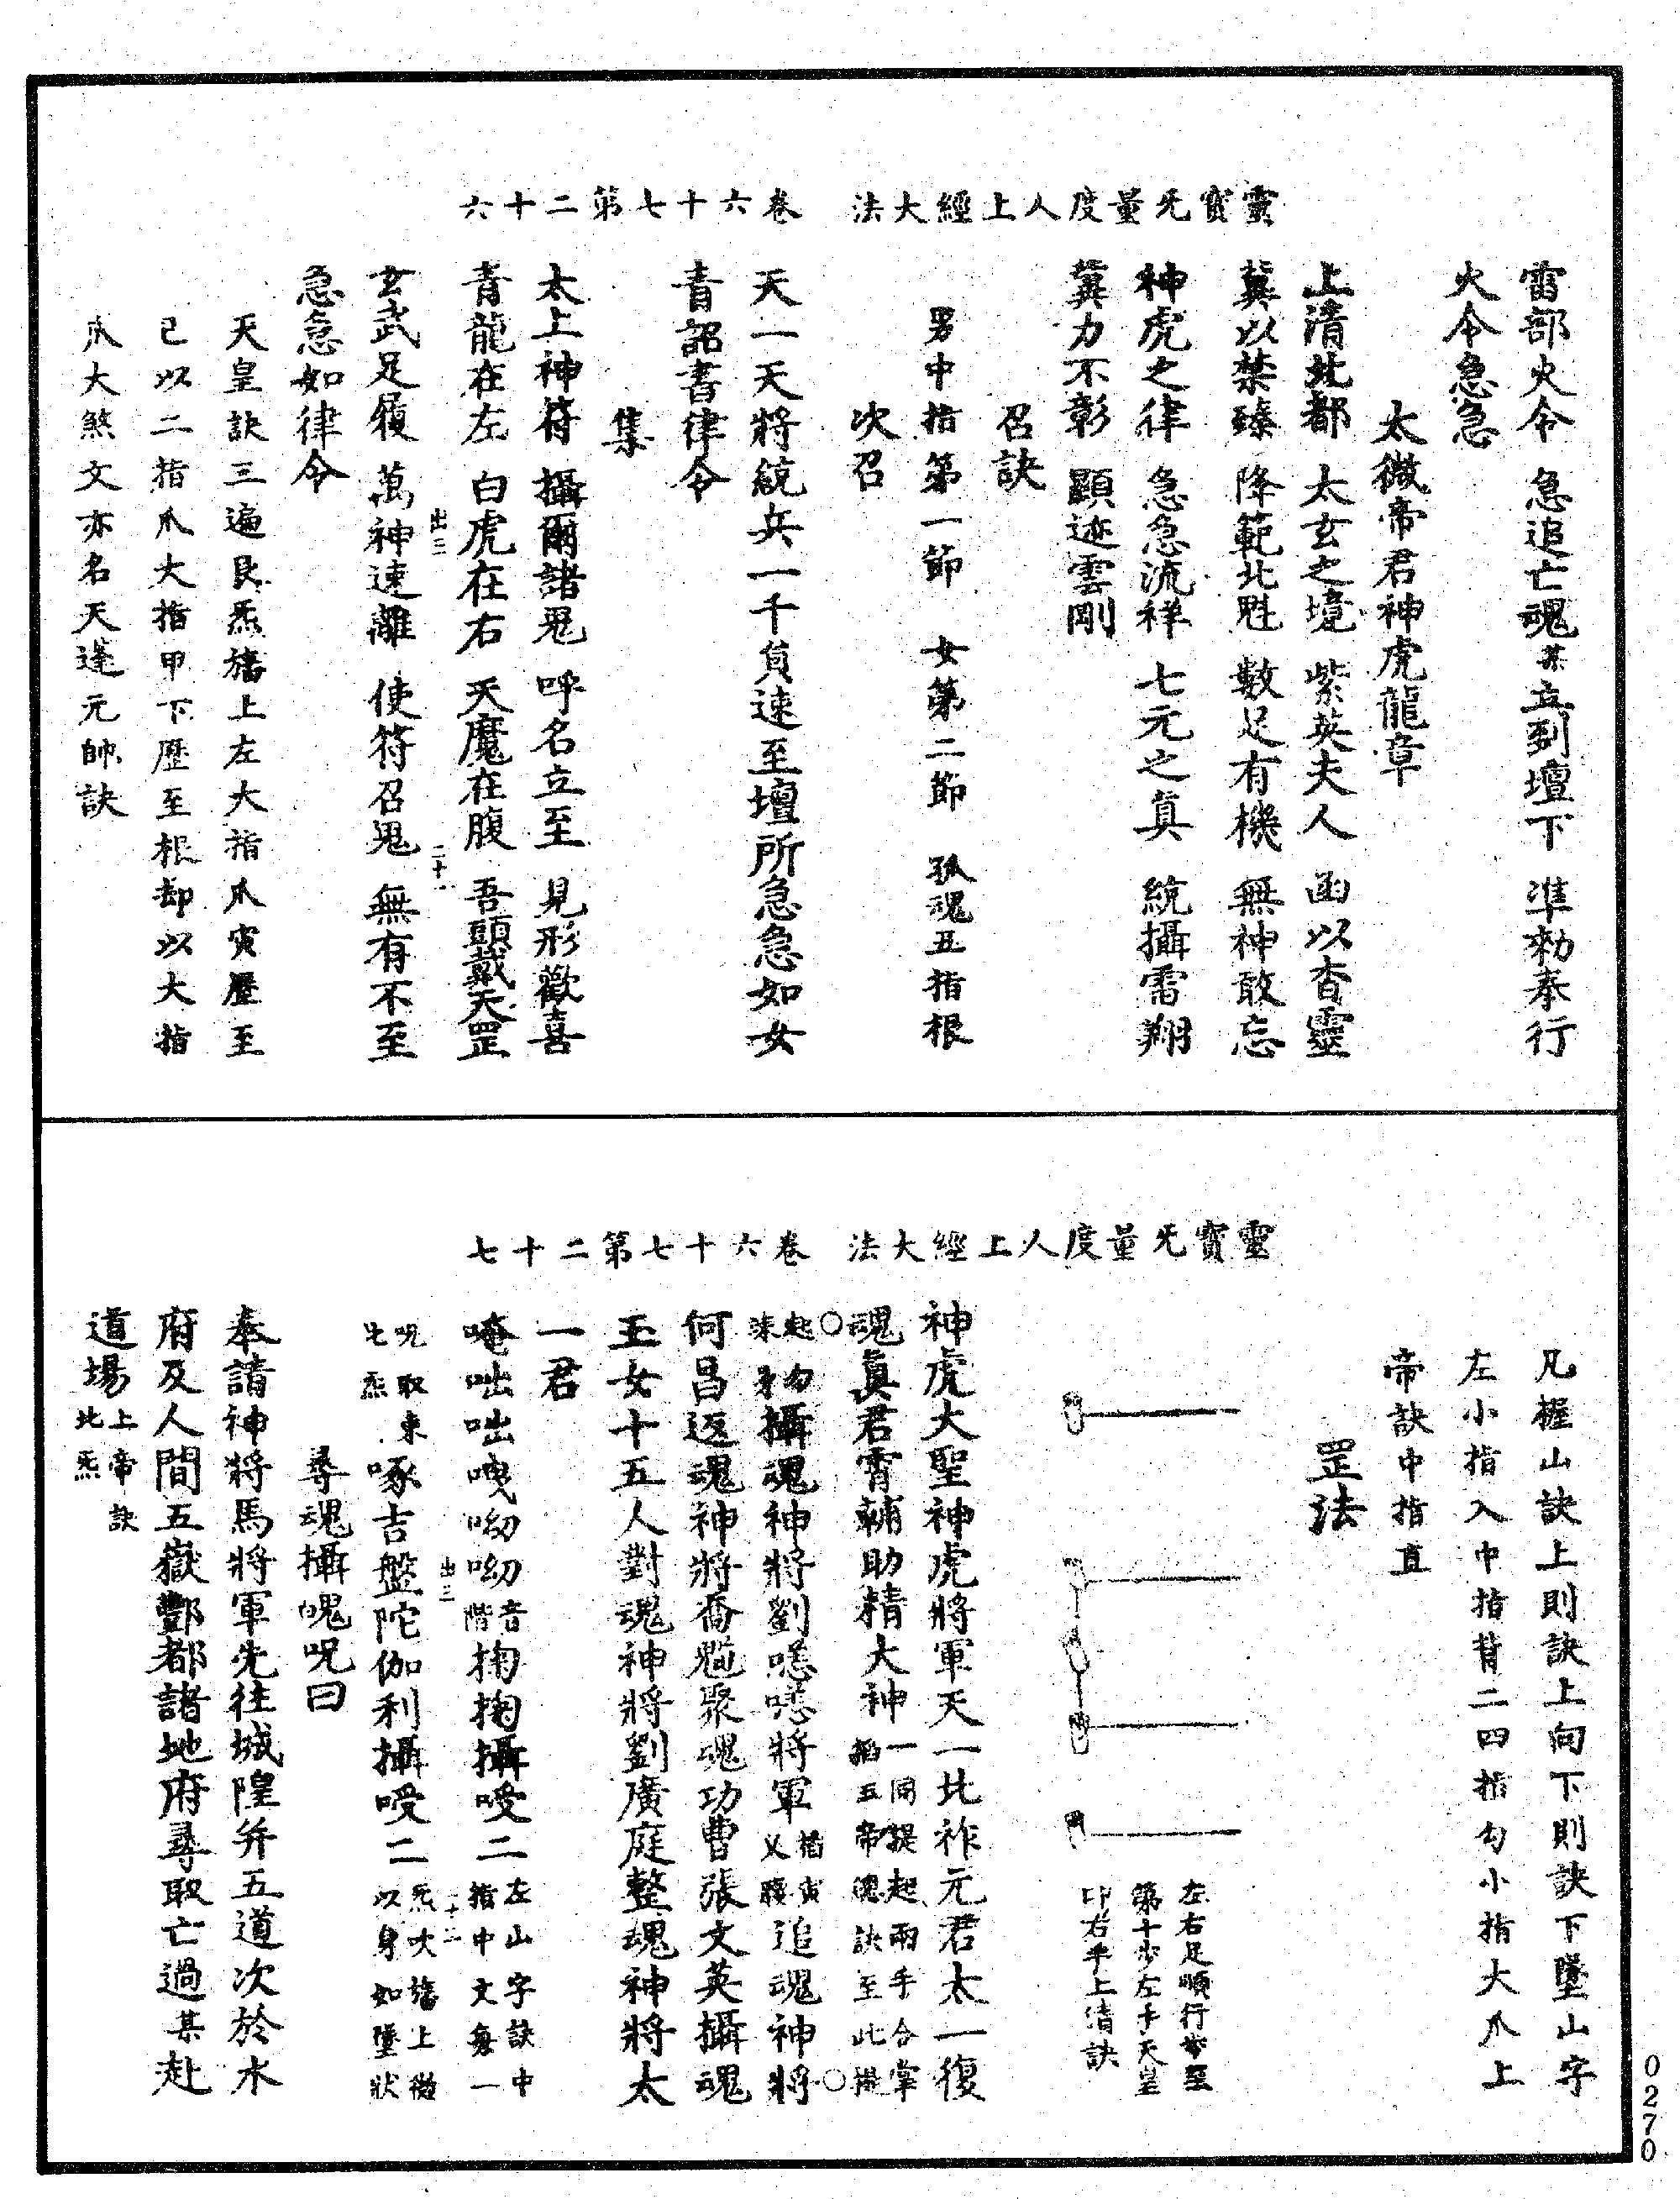 靈寶无量度人上經大法　卷六十七第二十六
雷部火令　急追亡魂某立到壇下　準勑奉行
火令急急
太微帝君神虎龍章
上清北都　太玄之境　紫英夫人　函以杳靈
冀以禁臻　降範北魁　數足有機　無神敢忘
神虎之律　急急流祥　七元之真　統攝雷翔
冀力不彰　顯迹雲剛
召訣
男中指第一節　女第二節　孤魂丑指根
次召
天一天將統兵一千員速至壇所急急如女
青詔書律令
集
太上神符　攝爾諸鬼　呼名立至　見形歡喜
青龍在左　白虎在右　天魔在腹　吾頭戴天罡
出三　二十一
玄武足履　萬神速離　使符召鬼　無有不至
急急如律令
天皇訣三遍艮炁旛上左大指爪寅壓至
已以二指爪大指甲下歷至根却以大指
爪大煞文亦名天蓬元帥訣
靈寶无量度人上經大法　卷六十七第二十七
凡握山訣上則訣上向下則訣下墜山字
左小指入中指背二四指勾小指大爪上
帝訣中指直
罡法
左右足順行步至
第十步左手天皇
印右手上清訣
神虎大聖神虎將軍天一北祚元君太一復
魂真君霄輔助精大神一同提起兩手合掌
掐五帝總訣至此
〇起勾
來身攝魂神將劉將軍掐寅
追魂神將〇
何昌返魂神將喬聚魂功曹張文英攝魂
玉女十五人對魂神將劉廣庭整魂神將太
一君
唵咄咄㖂呦呦音
階掏掏攝唆二左山字訣中
指中文每一
出三　二十二
呪取東
七炁啄吉盤陀伽利攝唆二炁大旛上微
以身如墜狀
尋魂攝魄呪曰
奉請神將馬將軍先往城隍并五道次於水
府及人間五嶽酆都諸地府尋取亡過某赴
道場上帝訣
北炁
0270